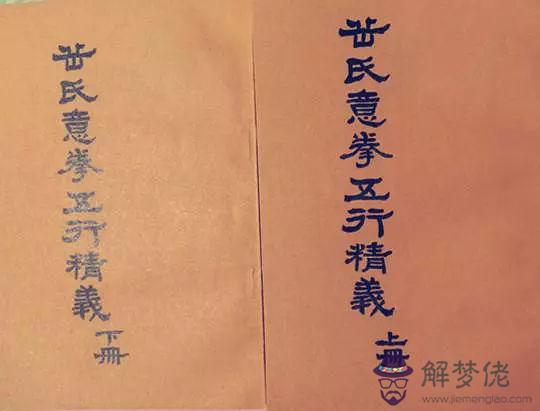 岳氏意拳五行精義
上冊
岳氏意拳五行精義
下冊
解梦佬
www.jiemenglao.com